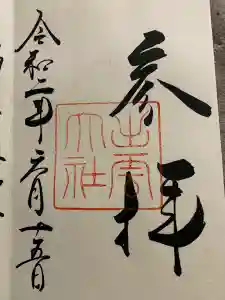 参拝
出雲大社
令和二年六月十五日